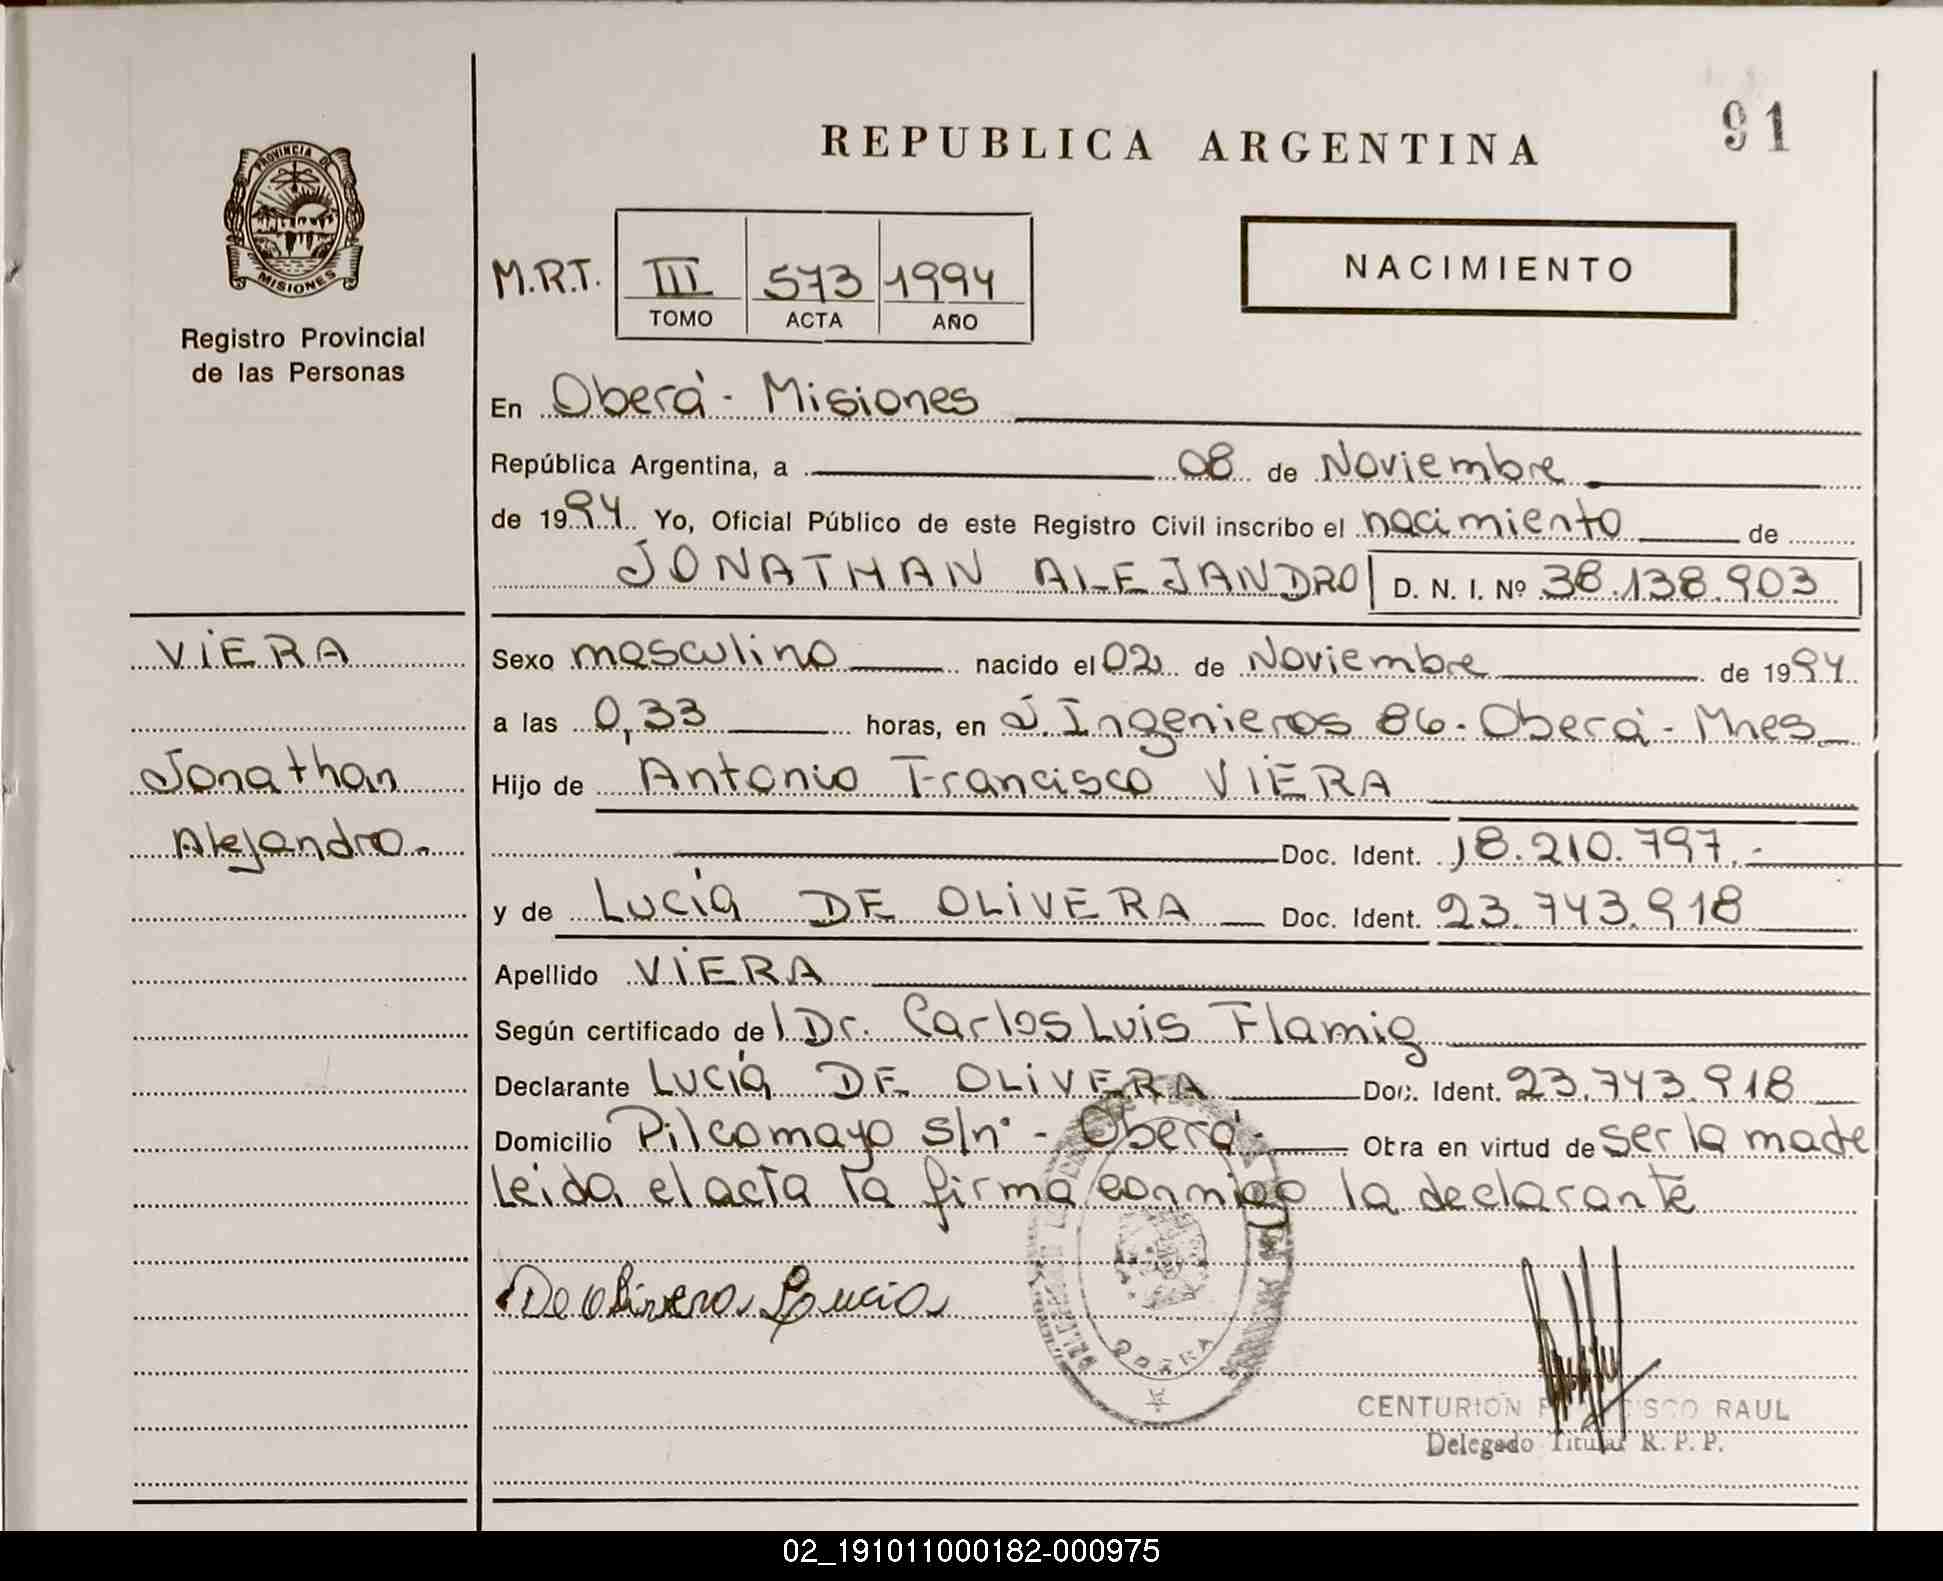 91
REPUBLICA ARGENTINA
PROVINCIA DE
MISIONES
Registro Provincial
de las Personas
M.R.T. III 573 1994
TOMO ACTA AÑO
NACIMIENTO
En Oberá - Misiones
República Argentina, a 08 de Noviembre
de 1994 Yo, Oficial Público de este Registro Civil inscribo el nacimiento de
JONATHAN ALEJANDRO D. N. I. Nº 38.138.903
VIERA
Jonathan
Alejandro.-
Sexo masculino nacido el 02 de Noviembre de 1994
a las 0,33 horas, en J. Ingenieros 86 - Oberá - Mnes
Hijo de Antonio Francisco VIERA
Doc. Ident. 18.210.797.-
y de Lucía DE OLIVERA Doc. Ident. 23.743.918
Apellido VIERA
Según certificado del Dr. Carlos Luis Flamig
Declarante Lucía DE OLIVERA Doc. Ident. 23.743.918
Domicilio Pilcomayo s/nº - Oberá - Obra en virtud de ser la madre
Leida el acta la firma conmigo la declarante
De Olivera Lucia
OBERA
CENTURION RAUL
Delegado Titular R. P. P.
02_191011000182-000975